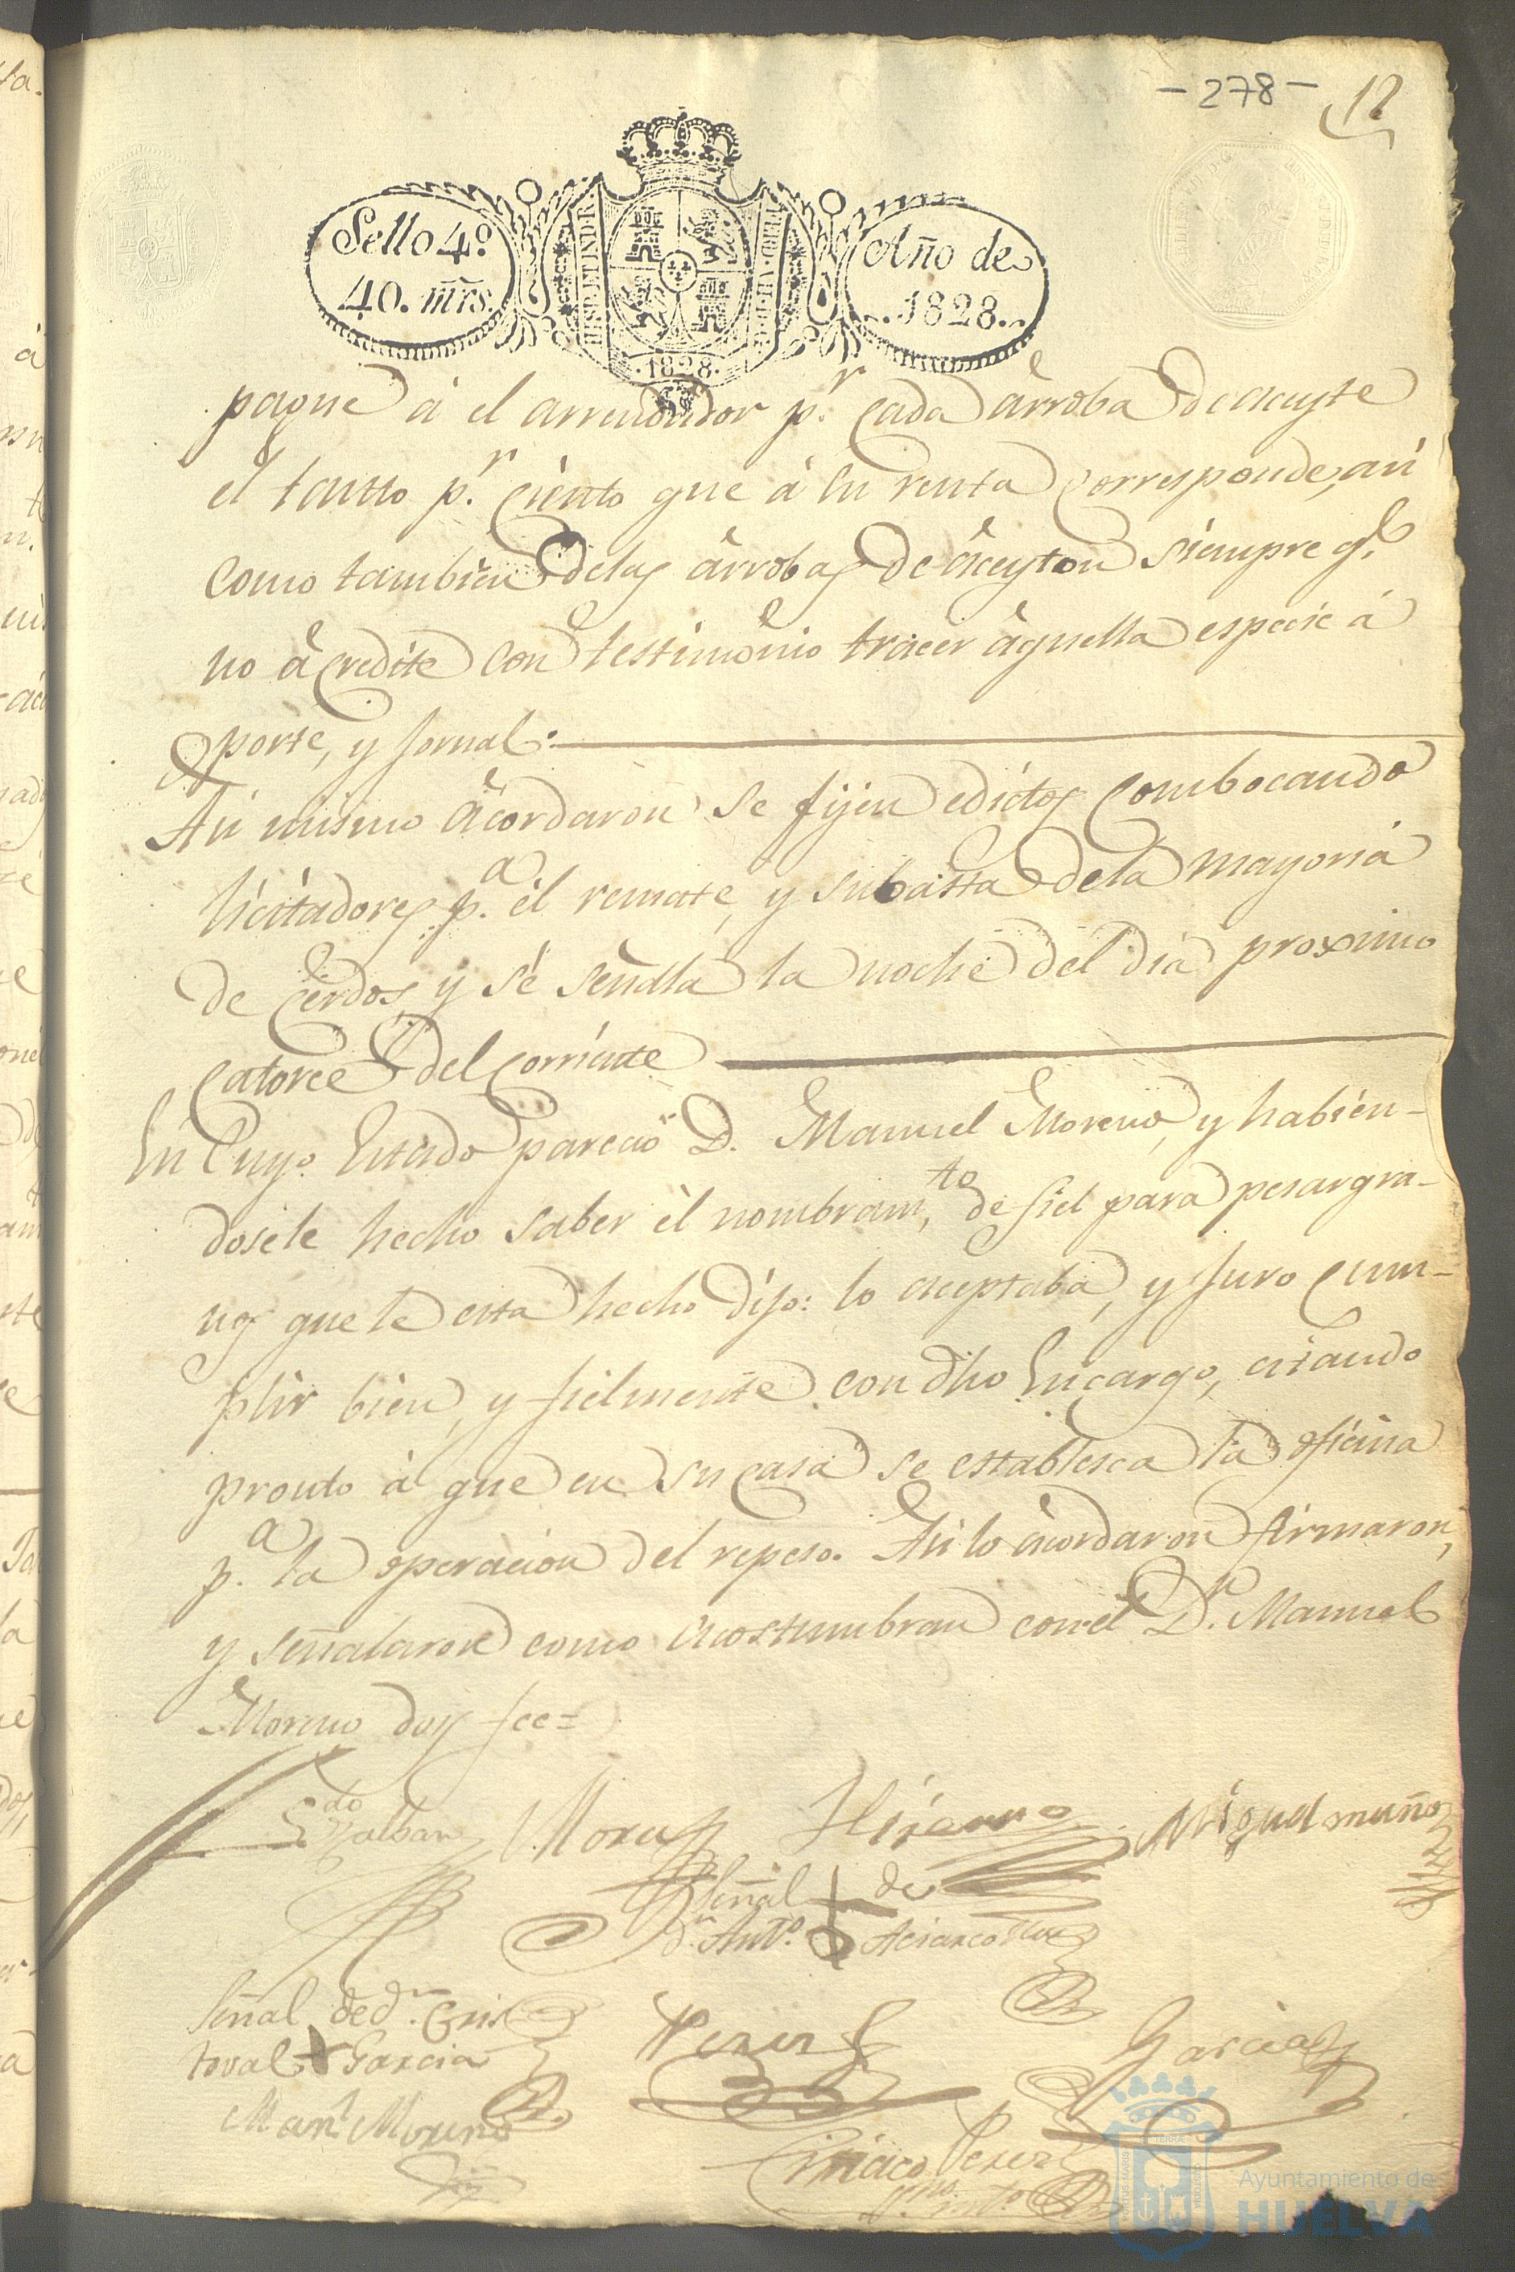 - 278 - 12
Sello 4º
40. mrs.
Año de
1828.
HISP. ET IND. R.
1828.
pague á el arrendador pr. cada àrroba de aceyte
el tanto pr. ciento que à su renta corresponde, asi
como tambien delas àrrobas de àceyton siempre q.e
no àcredite con testimonio traer àquella especie á
porte, y jornal:
Asi mismo àcordaron se fijen edictos combocando
licitadores pa. èl remate, y subasta dela mayoria
de Cerdos, y sé señala la noche del dia proximo
catorce del corriente
En Cuyo Estado pareció D. Manuel Moreno, y habien-
dosele hecho saber èl nombramto, de fiel para pesar gra-
nos que le esta hecho dijo: lo aceptaba, y juro cum-
plir bien, y fielmente con dho Encargo, estando
pronto à que en su casa se establesca la oficina
pa. la operacion del repeso. Asi lo àcordaron firmaron,
y señalaron como acostumbran con el Dn. Manuel
Moreno doy fee=
Ldo Galban
Miguel muño
Señal de
dn. Anto.
Señal de dn. Cris
toval Garcia
Perez
Garcia
Manl Moreno
Ciriaco Perez
Ayuntamiento de
HUELVA